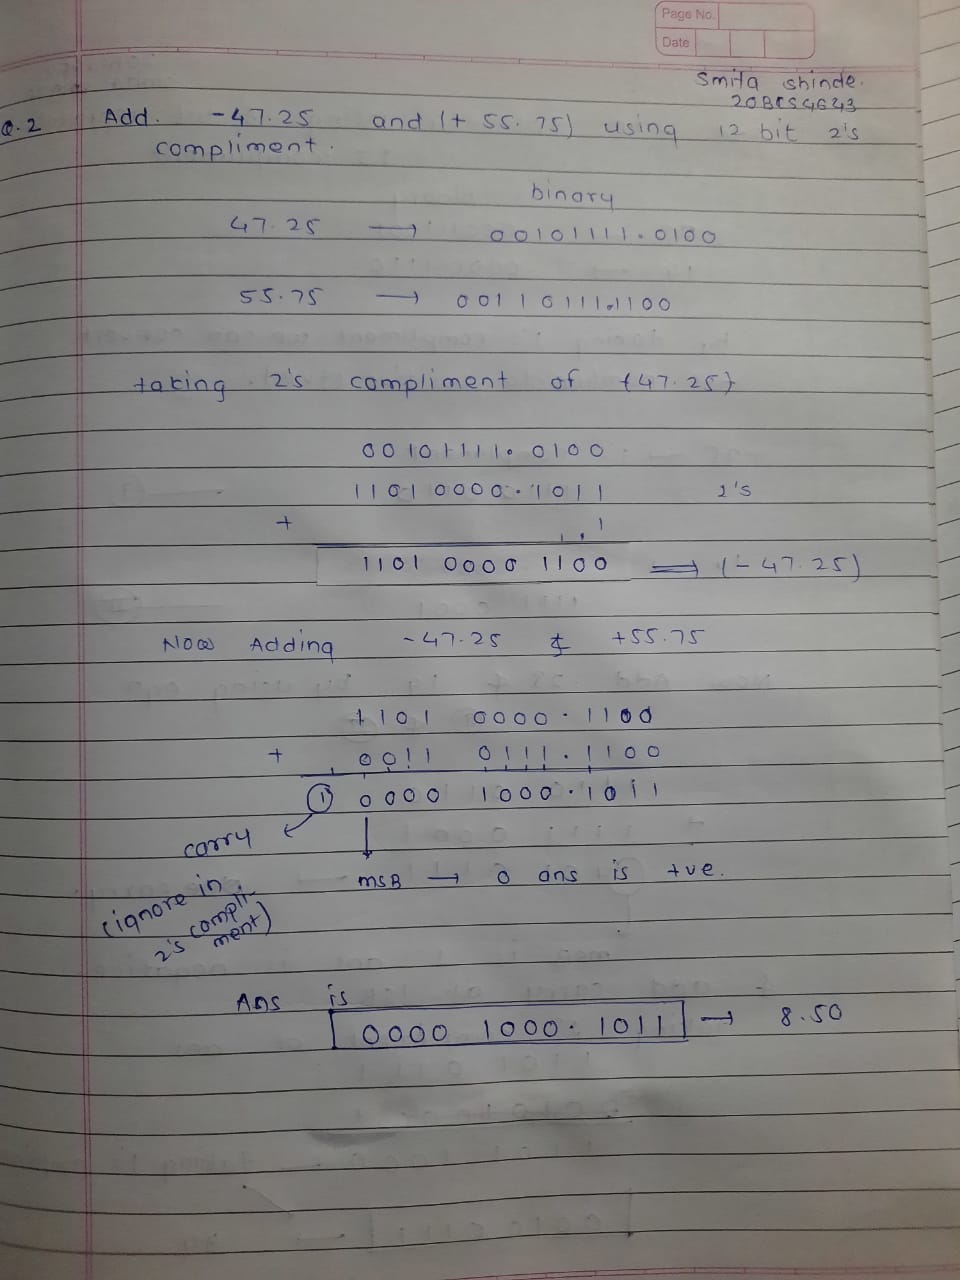 Page No.
Date
Smita shinde.
20BCS4643
Q.2 Add. -47.25 and (+ 55.75) using 12 bit 2's
compliment.
binary
47.25 → 00101111.0100
55.75 → 00110111.1100
taking 2's compliment of {47.25}
00101111.0100
11010000.1011 2's
+ 1
1101 0000 1100 ⟹ (-47.25)
Now Adding -47.25 & +55.75
1101 0000.1100
+ 0011 0111.1100
① 0000 1000.1011
carry
(ignore in 2's compliment)
MSB → 0 ans is +ve.
Ans is
0000 1000.1011 → 8.50